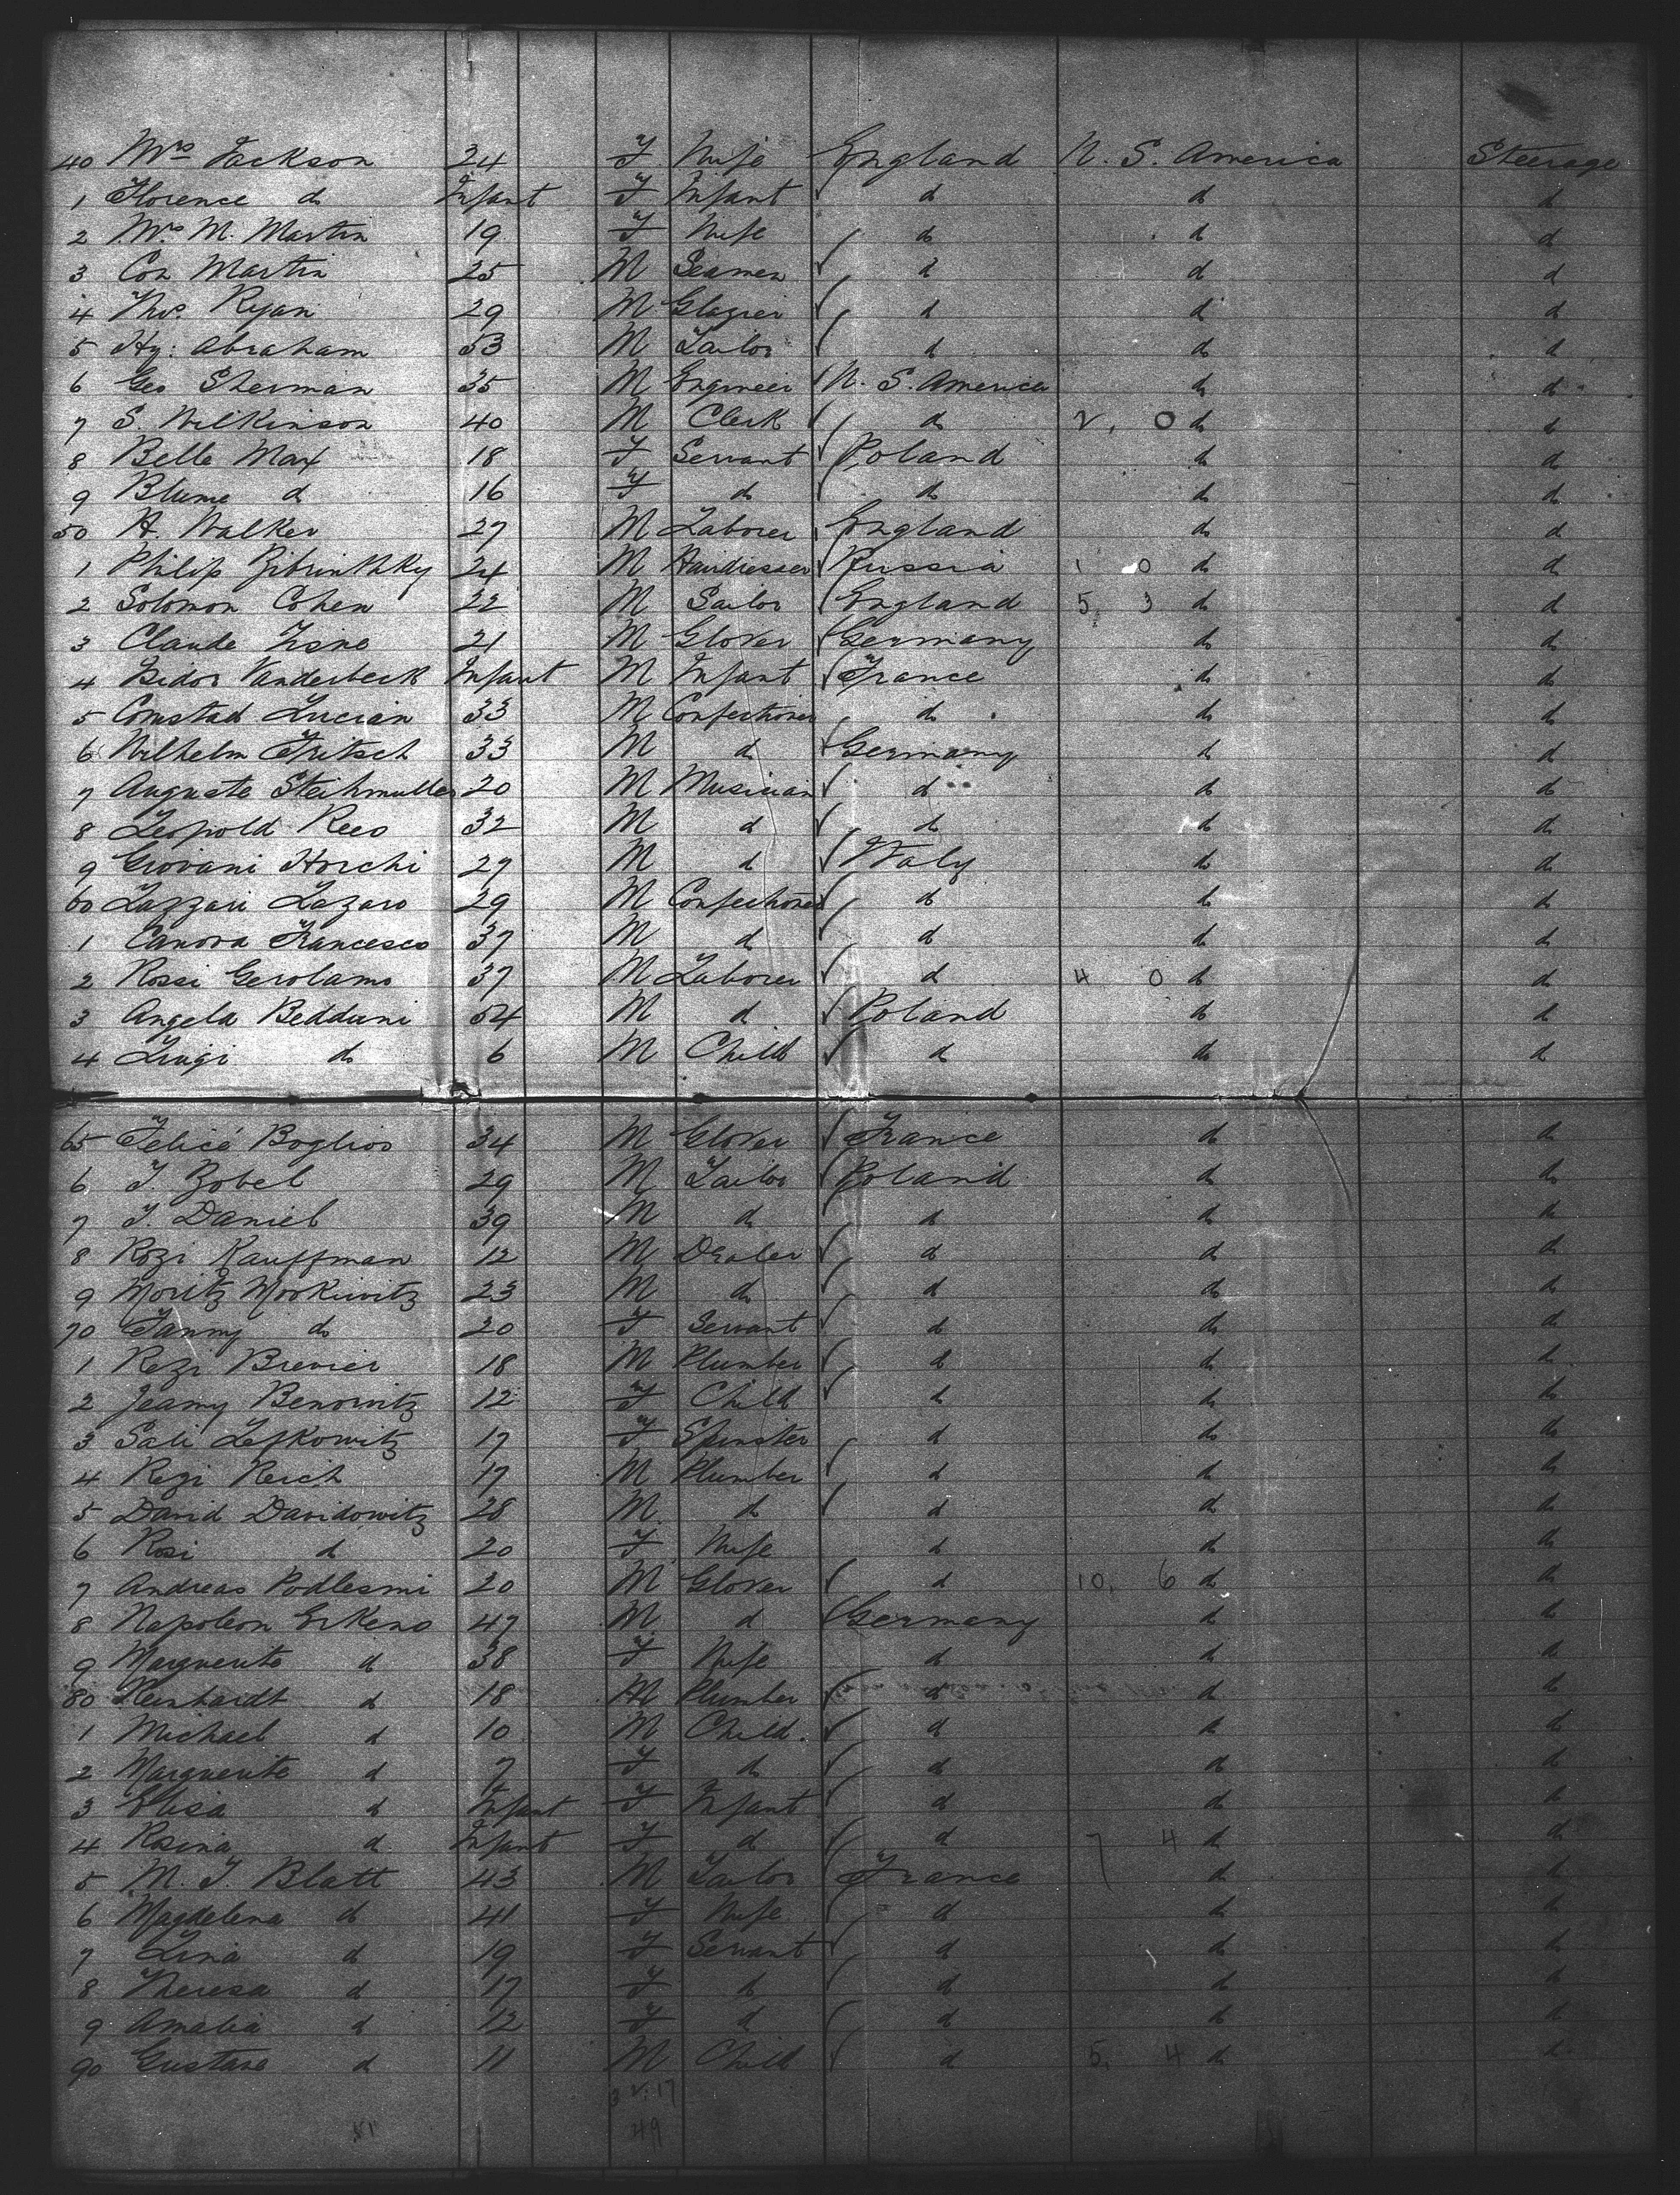 40 Mrs Jackson 24 F Wife England U. S. America Steerage
1 Florence do Infant F Infant do do do
2 Mrs M. Martin 19 F Wife do do do
3 Con Martin 25 M Seamen do do do
4 Thos. Ryan 29 M Glazier do do do
5 Hy: Abraham 53 M Tailor do do do
6 Geo Sherman 35 M Engineer U. S. America do do
7 S. Wilkinson 40 M Clerk do 2, 0 do do
8 Belle Max 18 F Servant Poland do do
9 Blume do 16 F do do do do
50 H. Walker 27 M Laborer England do do
1 Philip 24 M Hairdresser Russia 1 0 do do
2 Solomon Cohen 22 M Sailor England 5, 3 do do
3 Claude 21 M Glover Germany do do
4 Isidor Vanderbeck Infant M Infant France do do
5 Comstad Lucian 33 M Confectioner do do do
6 Wilhelm Fritsch 33 M do Germany do do
7 Auguste Steihmuller 20 M Musician do do do
8 Leopold Rees 32 M do do do do
9 Giovani Horchi 27 M do Italy do do
60 Lazzari Lazaro 29 M Confectioner do do do
1 Canova Francesco 37 M do do do do
2 Rossi Gerolamo 37 M Laborer do 4 0 do do
3 Angela Bedduni 54 M do Poland do do
4 Luigi do 6 M Child do do do
65 Felicé Boglios 34 M Glover France do do
6 J Zobel 29 M Tailor Poland do do
7 J. Daniel 39 M do do do do
8 Rozi Kauffman 12 M Dealer do do do
9 Moritz Moskiwitz 23 M do do do do
70 Fanny do 20 F Servant do do do
1 Rezi Brevier 18 M Plumber do do do
2 Jeamy Benowitz 12 F Child do do do
3 Sali Lefkowitz 17 F Spinster do do do
4 Rezi Reich 17 M Plumber do do do
5 David Davidowitz 28 M do do do do
6 Rosi do 20 F Wife do do do
7 Andreas Podlesmi 20 M Glover do 10, 6 do do
8 Napoleon Erkens 47 M do Germany do do
9 Marguerite do 38 F Wife do do do
80 Reinhardt do 18 M Plumber do do do
1 Michael do 10 M Child do do do
2 Marguerite do 7 F do do do do
3 Elisa do Infant F Infant do do do
4 Rosina do Infant F do do 7 4 do do
5 M. J. Blatt 43 M Tailor France do do
6 Magdelena do 41 F Wife do do do
7 Lina do 19 F Servant do do do
8 Theresa do 17 F do do do do
9 Amalia do 12 F do do do do
90 Gustave do 11 M Child do 5, 4 do do
32.17
49